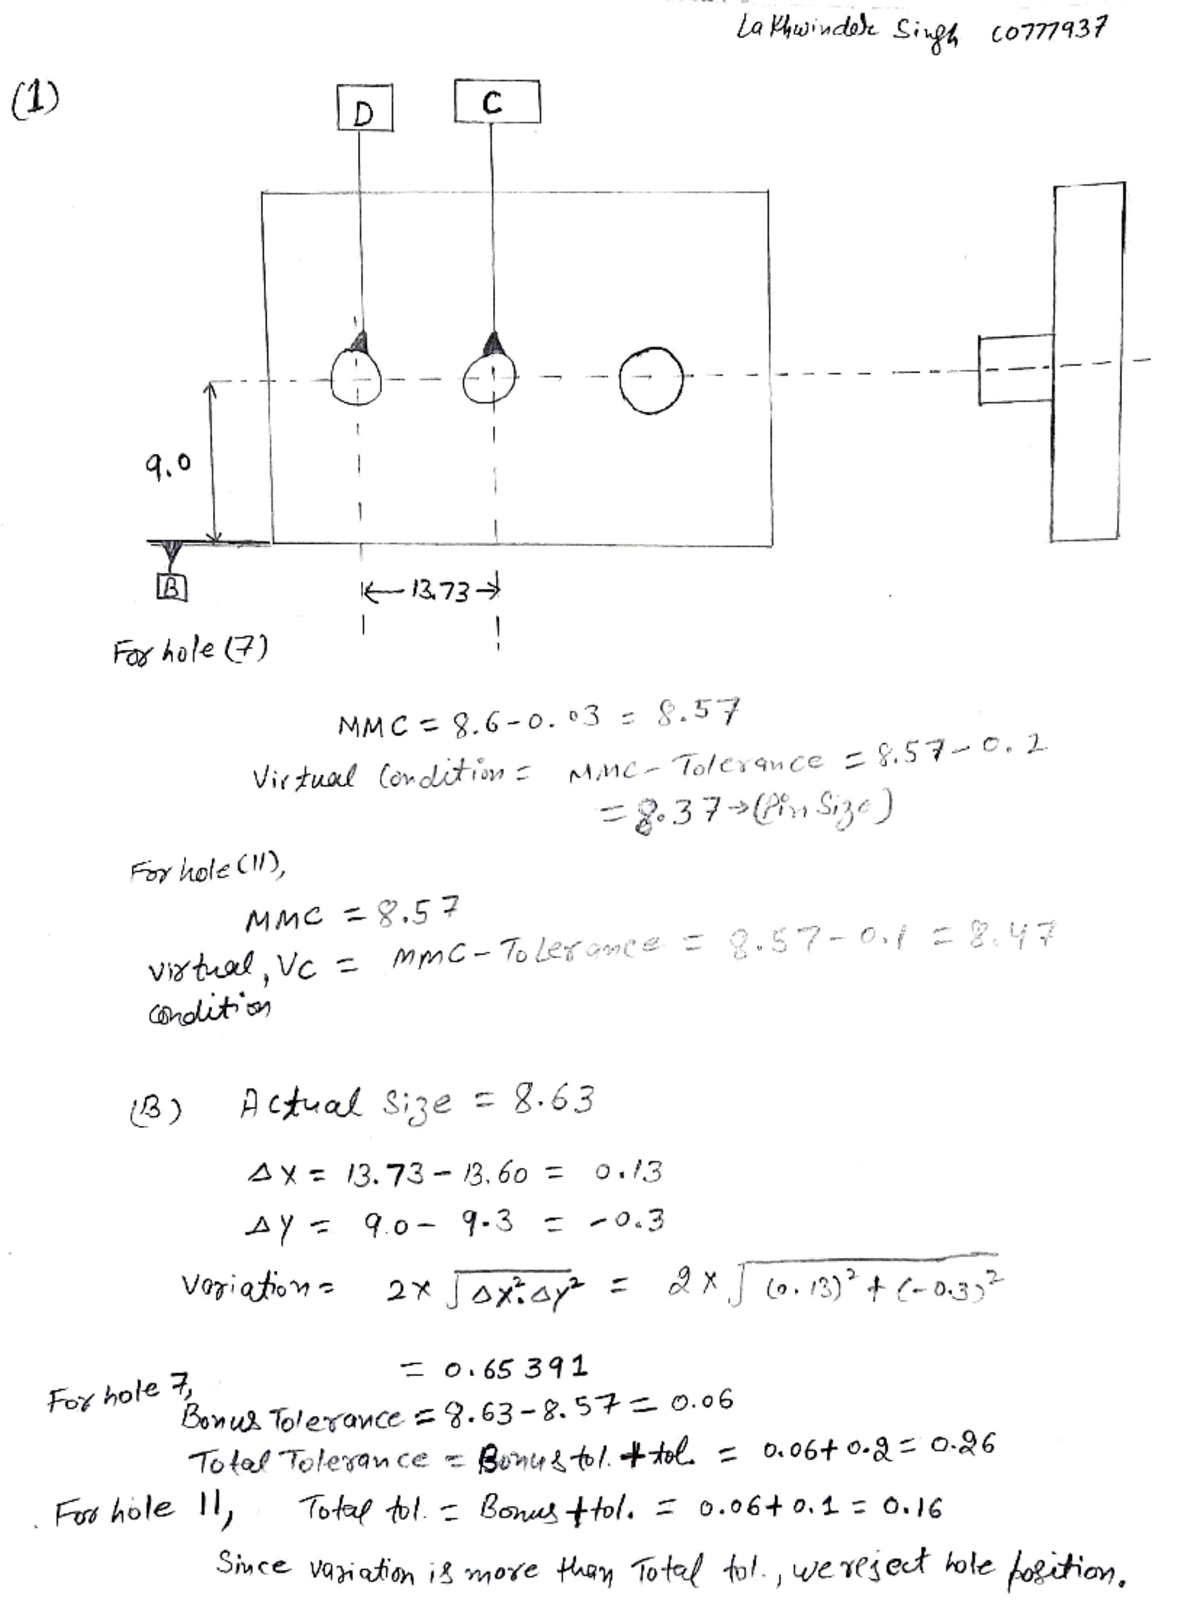 Lakhwinder Singh C0777937
(1)
D
C
9.0
B
13.73
For hole (7)
MMC = 8.6-0.03 = 8.57
Virtual Condition = MMC - Tolerance = 8.57-0.2
= 8.37 → (Pin Size)
For hole (11),
MMC = 8.57
virtual, VC = MMC - Tolerance = 8.57-0.1 = 8.47
condition
(B) Actual Size = 8.63
ΔX = 13.73 - 13.60 = 0.13
ΔY = 9.0 - 9.3 = -0.3
Variation = 2x √ΔX²+ΔY² = 2x √(0.13)² + (-0.3)²
= 0.65391
For hole 7,
Bonus Tolerance = 8.63-8.57 = 0.06
Total Tolerance = Bonus tol. + tol. = 0.06+0.2 = 0.26
For hole 11, Total tol. = Bonus + tol. = 0.06+0.1 = 0.16
Since variation is more than Total tol., we reject hole position.